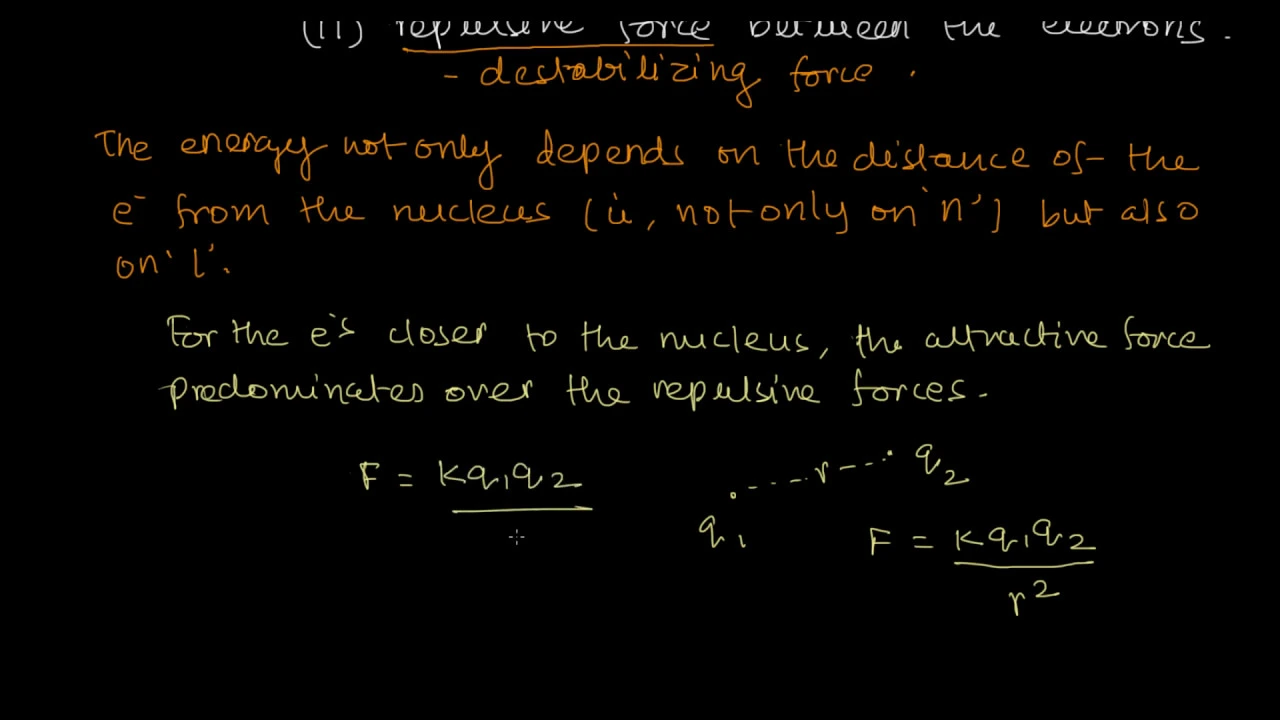 (ii) repulsive force between the electrons.
- destabilizing force.
The energy not only depends on the distance of the
e⁻ from the nucleus (ie, not only on 'n') but also
on 'l'.
For the e⁻s closer to the nucleus, the attractive force
predominates over the repulsive forces.
F = Kq₁q₂
q₁ r q₂
F = Kq₁q₂
r²